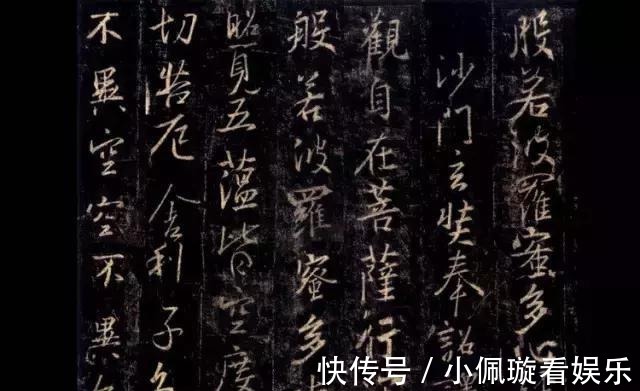 般若波羅蜜多心
沙門玄奘奉詔
觀自在菩薩行
般若波羅蜜多
照見五蘊皆空度
切苦厄舍利子色
不異空空不異色
快传号 / 小佩璇看娱乐